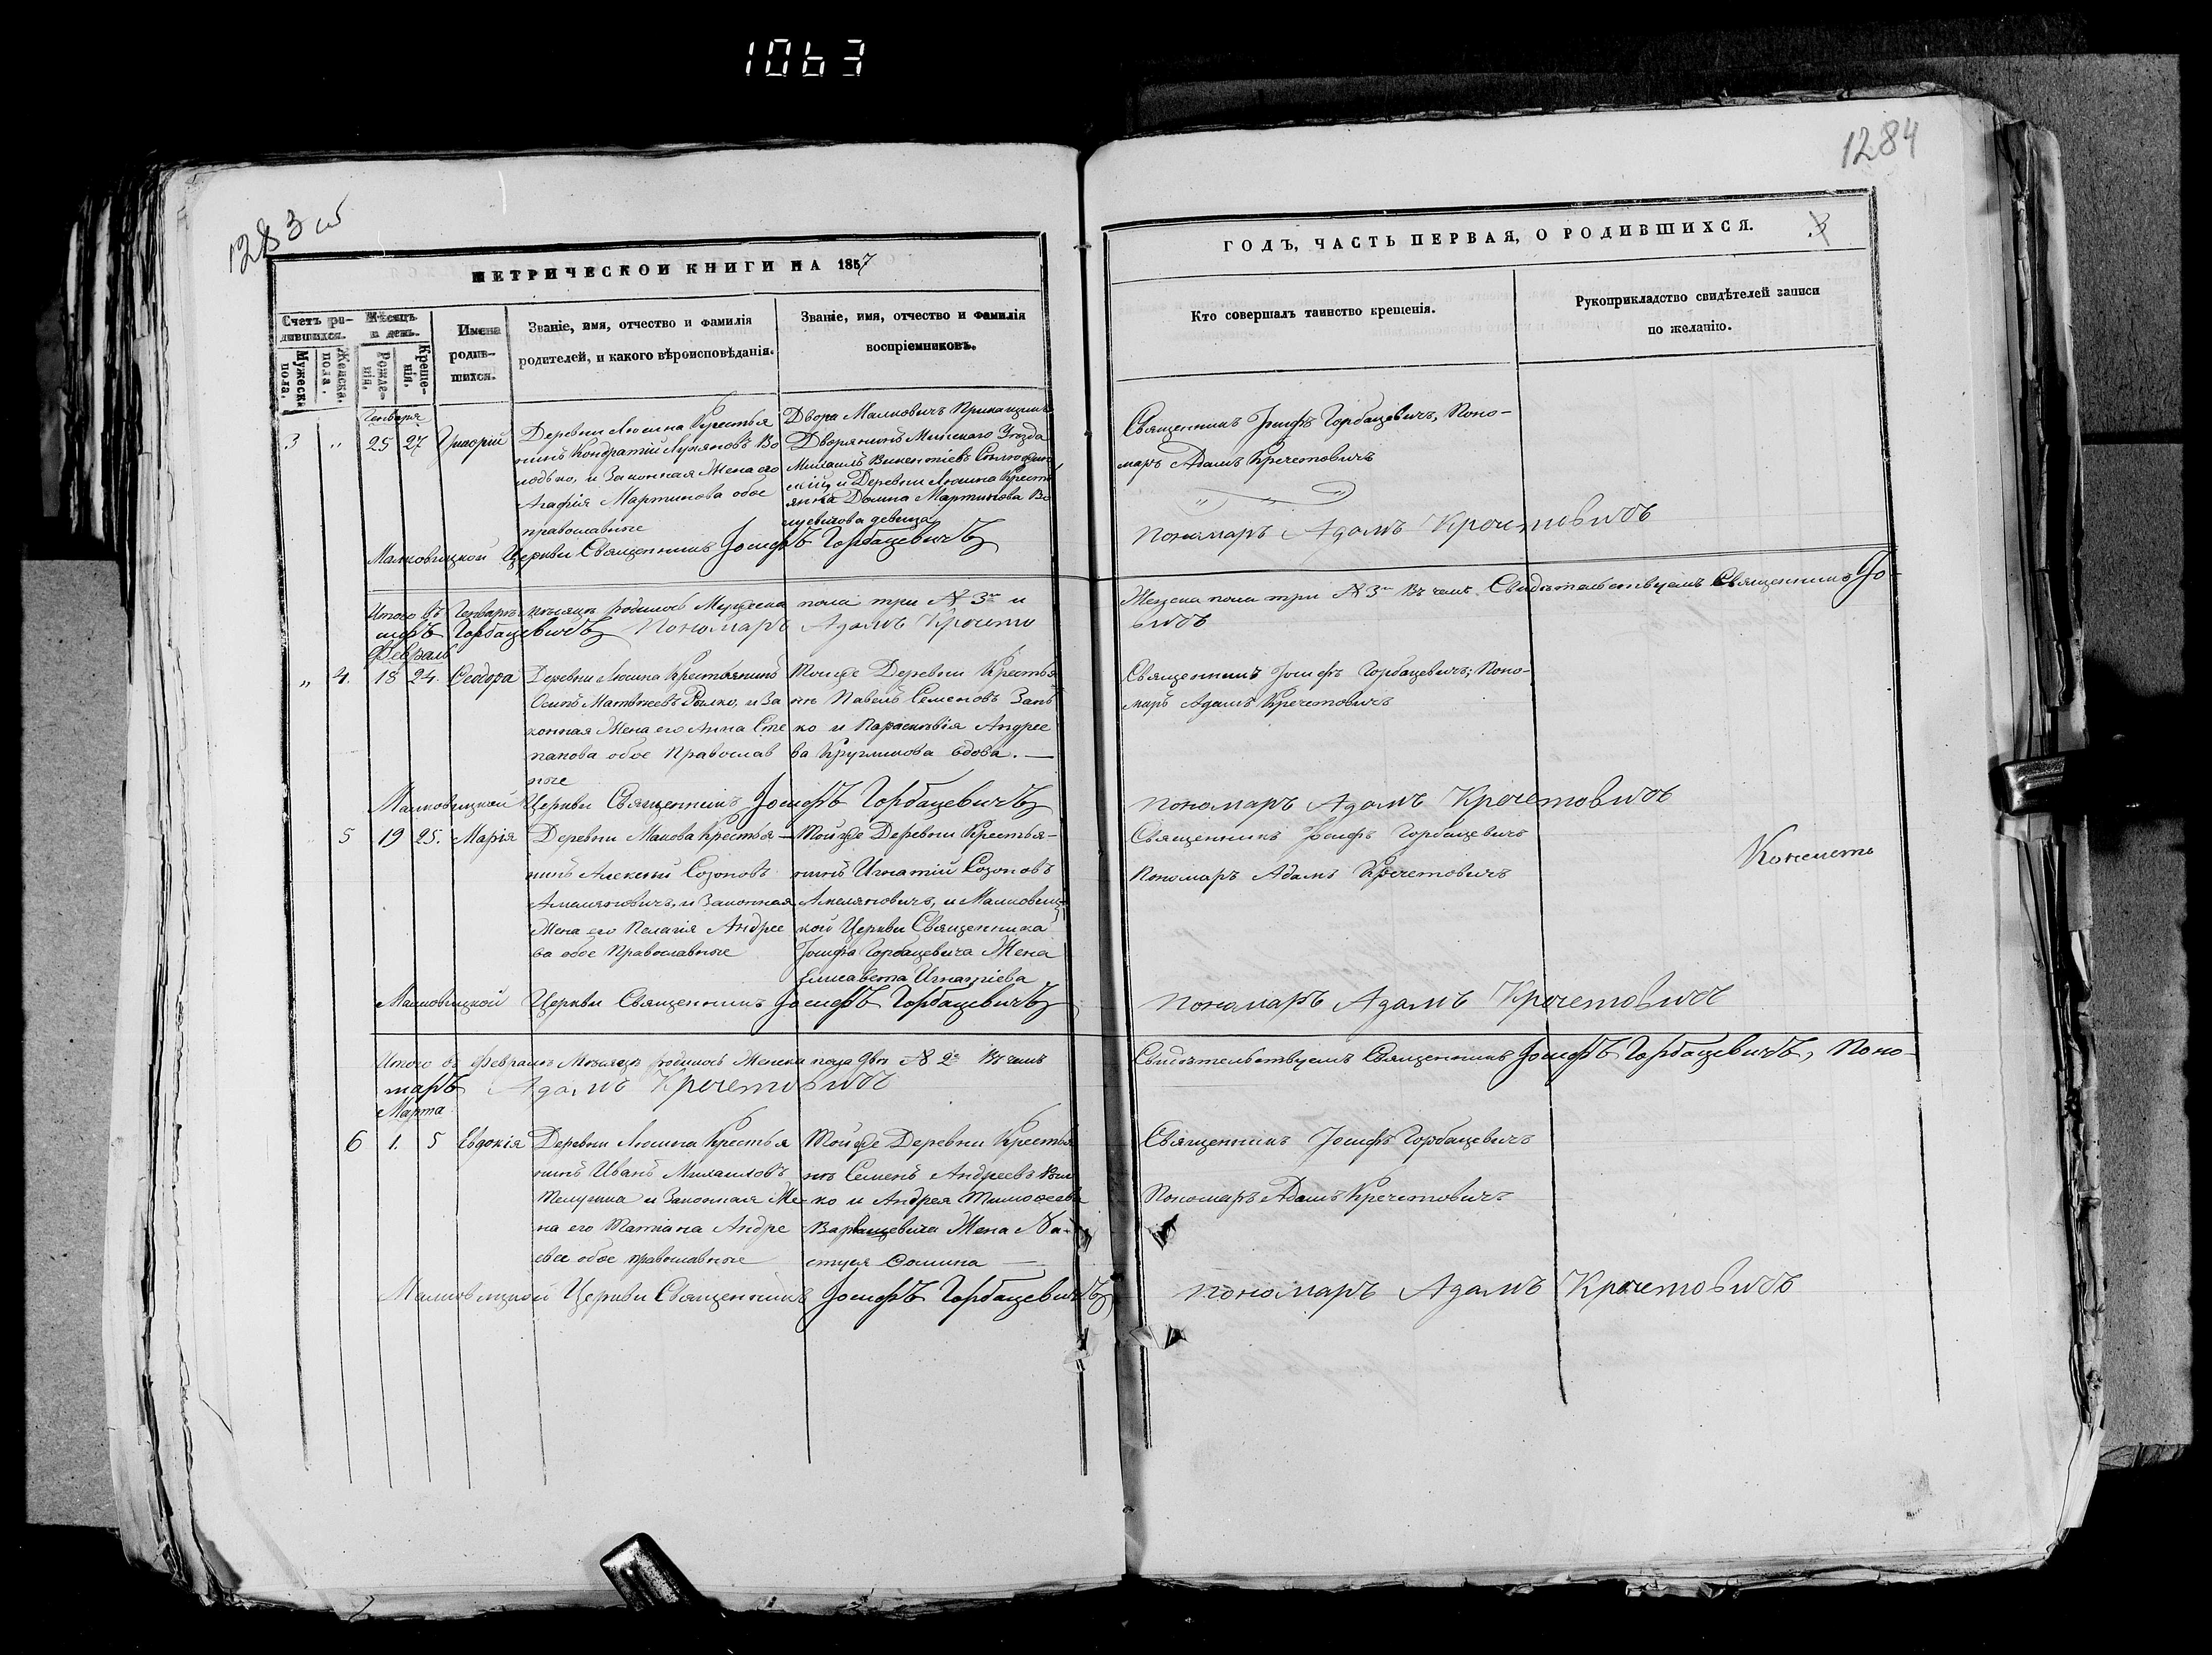 1063
1283 об
1284
МЕТРИЧЕСКОЙ КНИГИ НА 1857
ГОДЪ, ЧАСТЬ ПЕРВАЯ, О РОДИВШИХСЯ.
3
Счетъ ро-
дившихся.
Мужеска
пола.
Женска.
пола.
Мѣсяцъ
и день.
Рожде-
нія.
Креще-
нія.
Имена
родив-
шихся.
Званіе, имя, отчество и фамилія
родителей, и какого вѣроисповѣданія.
Званіе, имя, отчество и фамилія
воспріемниковъ.
Кто совершалъ таинство крещенія.
Рукоприкладство свидѣтелей записи
по желанію.
Генваря
3 " 25 27 Григорій
Деревни Люсина Крестья
нинъ Кондратій Лукяновъ Во
лодько, и Законная Жена его
Агафія Мартинова обое
православные
Двора Малковичъ Прикащикъ
Дворянинъ Минскаго Уѣзда
Михаилъ Викентіевъ
и Деревни Люсина Кресть
янка Домна Мартинова
девица
Священникъ Іосифъ Горбацевичъ, Поно-
марь Адамъ Кречетовичъ
Малковицкой Церкви Священникъ Іосифъ Горбацевичъ
Пономаръ Адамъ Кречетовичъ
Итого въ Генварѣ мѣсяцѣ родилось Мужеска пола три № 3 и
Женска пола три № 3 Въ чемъ Свидѣтельствуемъ Священникъ Іо-
сифъ Горбацевичъ Пономаръ Адамъ Кречето
вичъ
Февраль
" 4. 18 24. Феодора
Деревни Люсина Крестьянинъ
Осипъ Матвѣевъ Рылко, и За
конная Жена его Анна Сте
панова обое Православ
ные
Тойже Деревни Крестья
нъ Павелъ Семеновъ Зань
ко и Параскевія Андрее
ва Кругликова вдова.
Священникъ Іосифъ Горбацевичъ; Поно-
марь Адамъ Кречетовичъ
Малковицкой Церкви Священникъ Іосифъ Горбацевичъ
Пономаръ Адамъ Кречетовичъ
5 19 25. Марія
Деревни Макова Крестья-
нинъ Алексѣй Созоновъ
Амеляновичъ, и Законная
Жена его Пелагія Андрее
ва обое Православные
Тойже Деревни Крестья-
нинъ Игнатій Созоновъ
Амеляновичъ, и Малковиц-
кой Церкви Священника
Іосифа Горбацевича Жена
Елисавета Игнатіева
Священникъ Іосифъ Горбацевичъ
Пономаръ Адамъ Кречетовичъ
Малковицкой Церкви Священникъ Іосифъ Горбацевичъ
Пономаръ Адамъ Кречетовичъ
Итого въ Февралѣ Мѣсяцѣ родилось Женска пола двѣ № 2 Въ чемъ
Свидѣтельствуемъ Священникъ Іосифъ Горбацевичъ, Поно-
маръ Адамъ Кречетовичъ
Марта
6 1. 5 Евдокія
Деревни Люсина Крестья
нинъ Иванъ Михаиловъ
и Законная Же-
на его Татіана Андре
ева обое православные
Тойже Деревни Крестья
нъ Семенъ Андреевъ
ко и Андрея Тимоѳеева
Варвашевича Жена На-
стуся Фомина
Священникъ Іосифъ Горбацевичъ
Пономаръ Адамъ Кречетовичъ
Малковицкой Церкви Священникъ Іосифъ Горбацевичъ
Пономаръ Адамъ Кречетовичъ